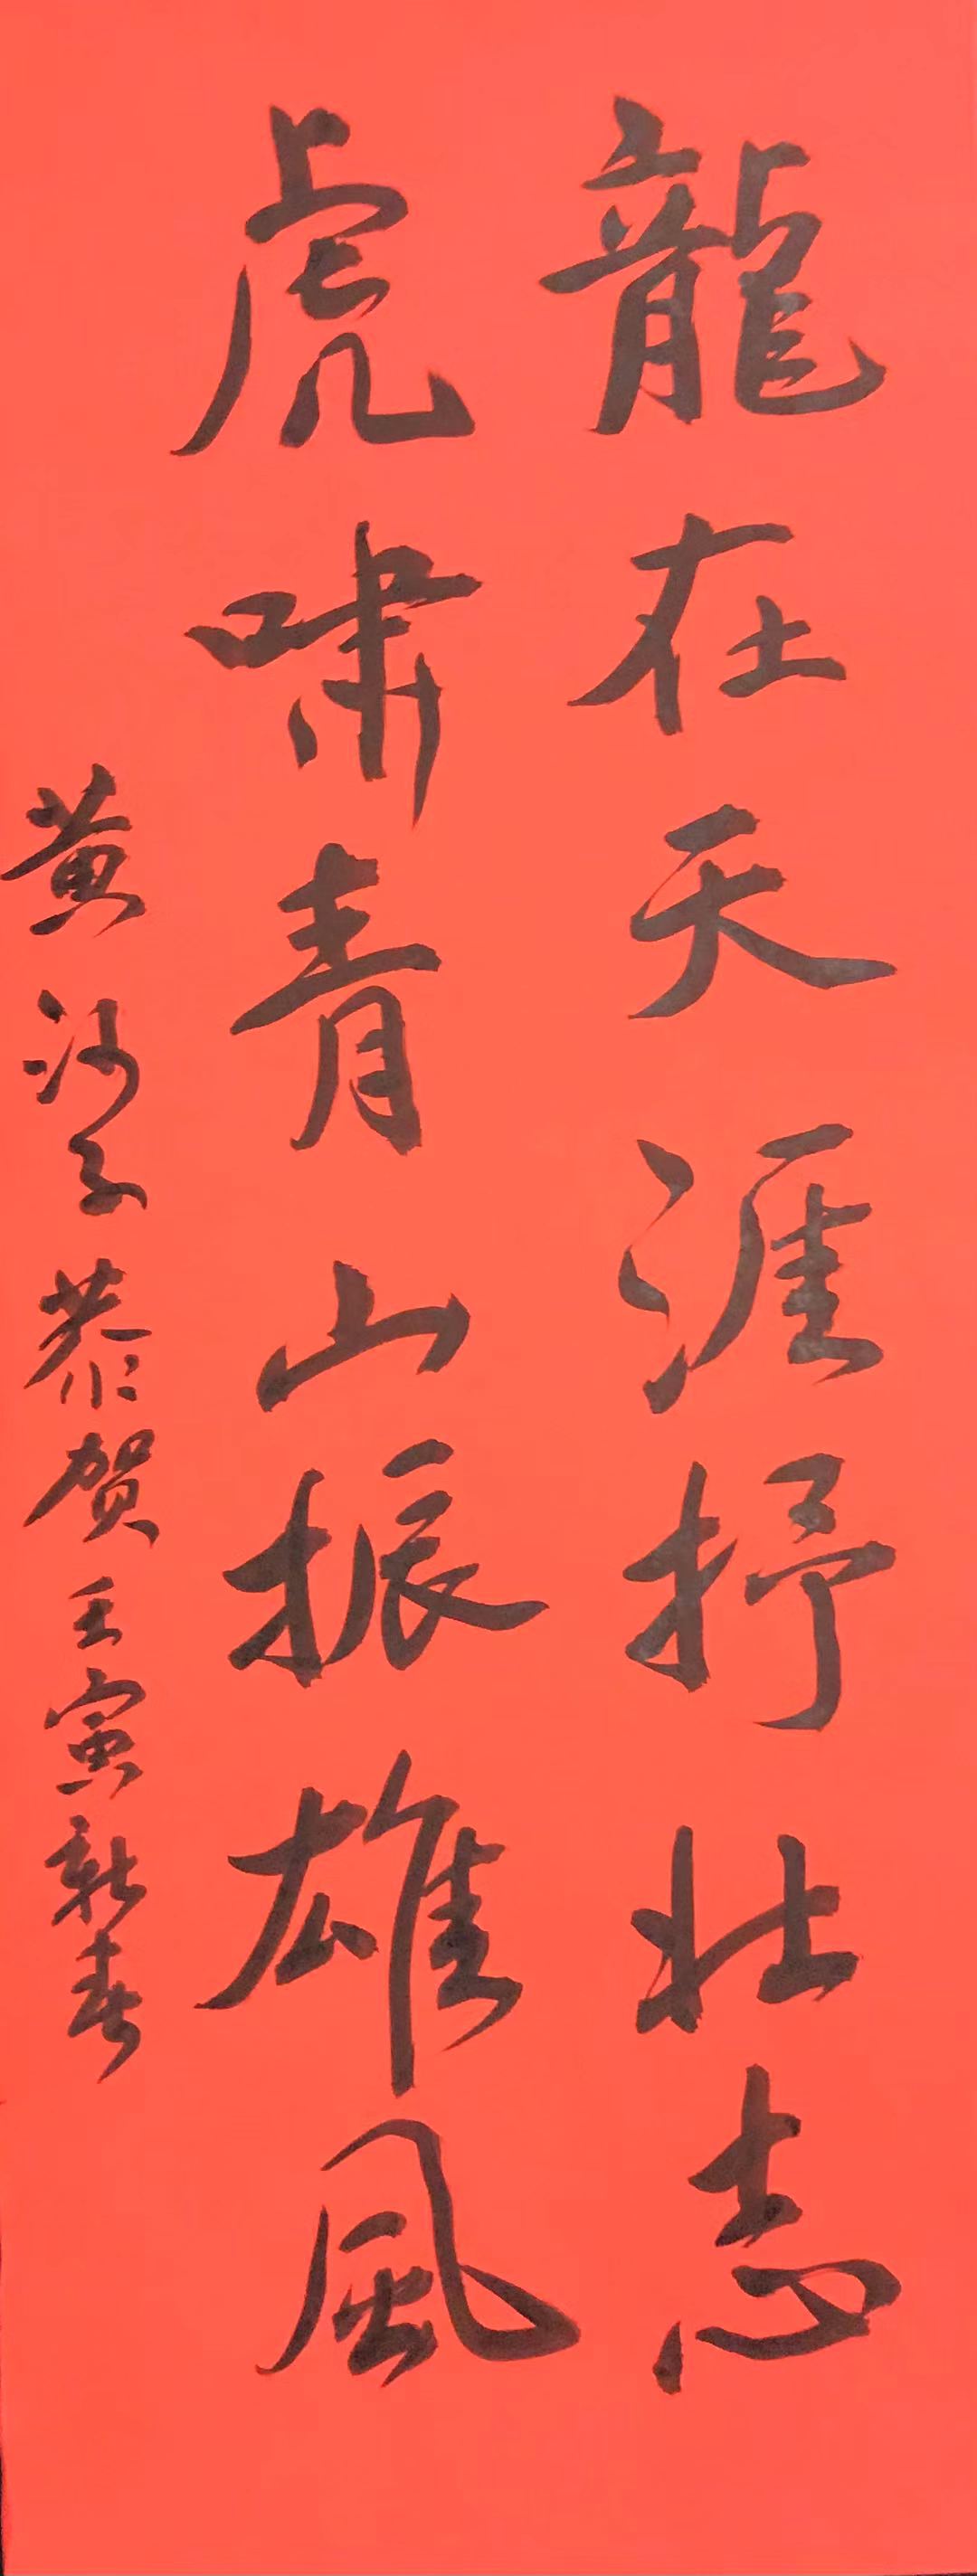 龍在天涯抒壯志
虎啸青山振雄風
黄沙子恭贺壬寅新春